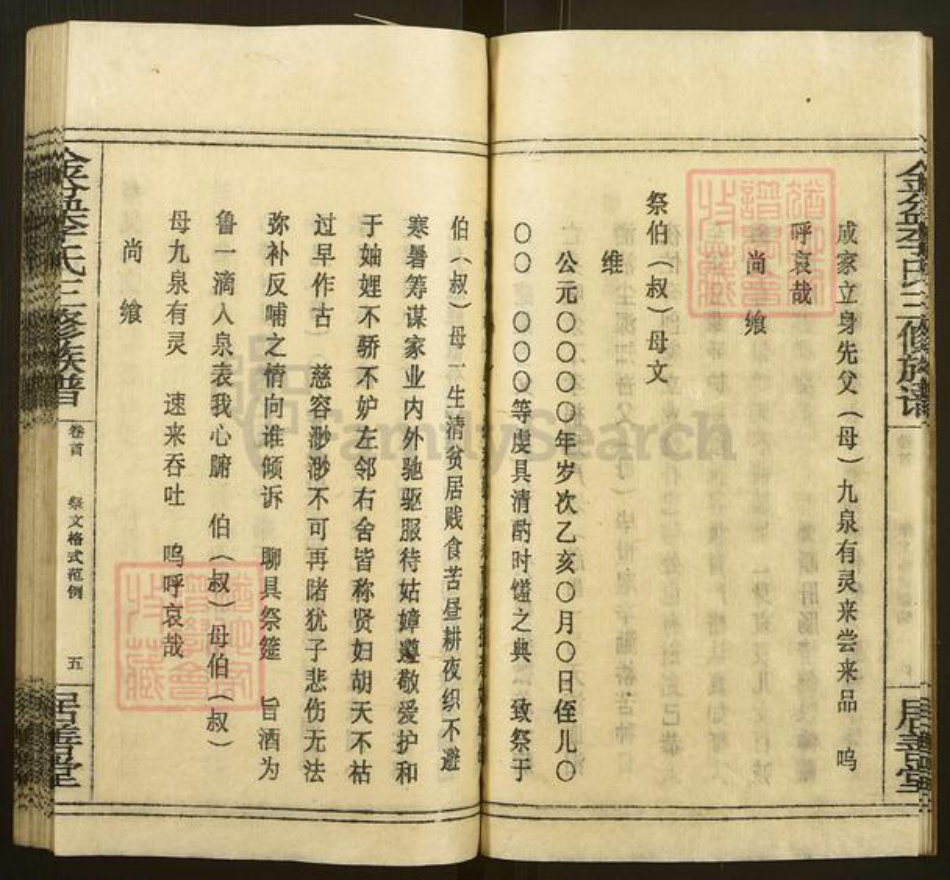 金盆李氏三修族谱
居善堂
成家立身先父（母）九泉有灵来尝来品　呜
呼哀哉
尚　飨
祭伯（叔）母文
维
公元〇〇〇〇年岁次乙亥〇月〇日侄儿〇
〇〇　〇〇〇等虔具清酌时馐之典　致祭于
伯（叔）母一生清贫居贱食苦昼耕夜织不避
寒暑筹谋家业内外驰驱服待姑嫜遵敬爱护和
于妯娌不骄不妒左邻右舍皆称贤妇胡天不祜
过早作古　慈容渺渺不可再睹犹子悲伤无法
弥补反哺之情向谁倾诉　聊具祭筵　旨酒为
鲁一滴入泉表我心腑　伯（叔）母伯（叔）
母九泉有灵　速来吞吐　呜呼哀哉
尚　飨
金盆李氏三修族谱
卷首
祭文格式范例
五
居善堂
FamilySearch